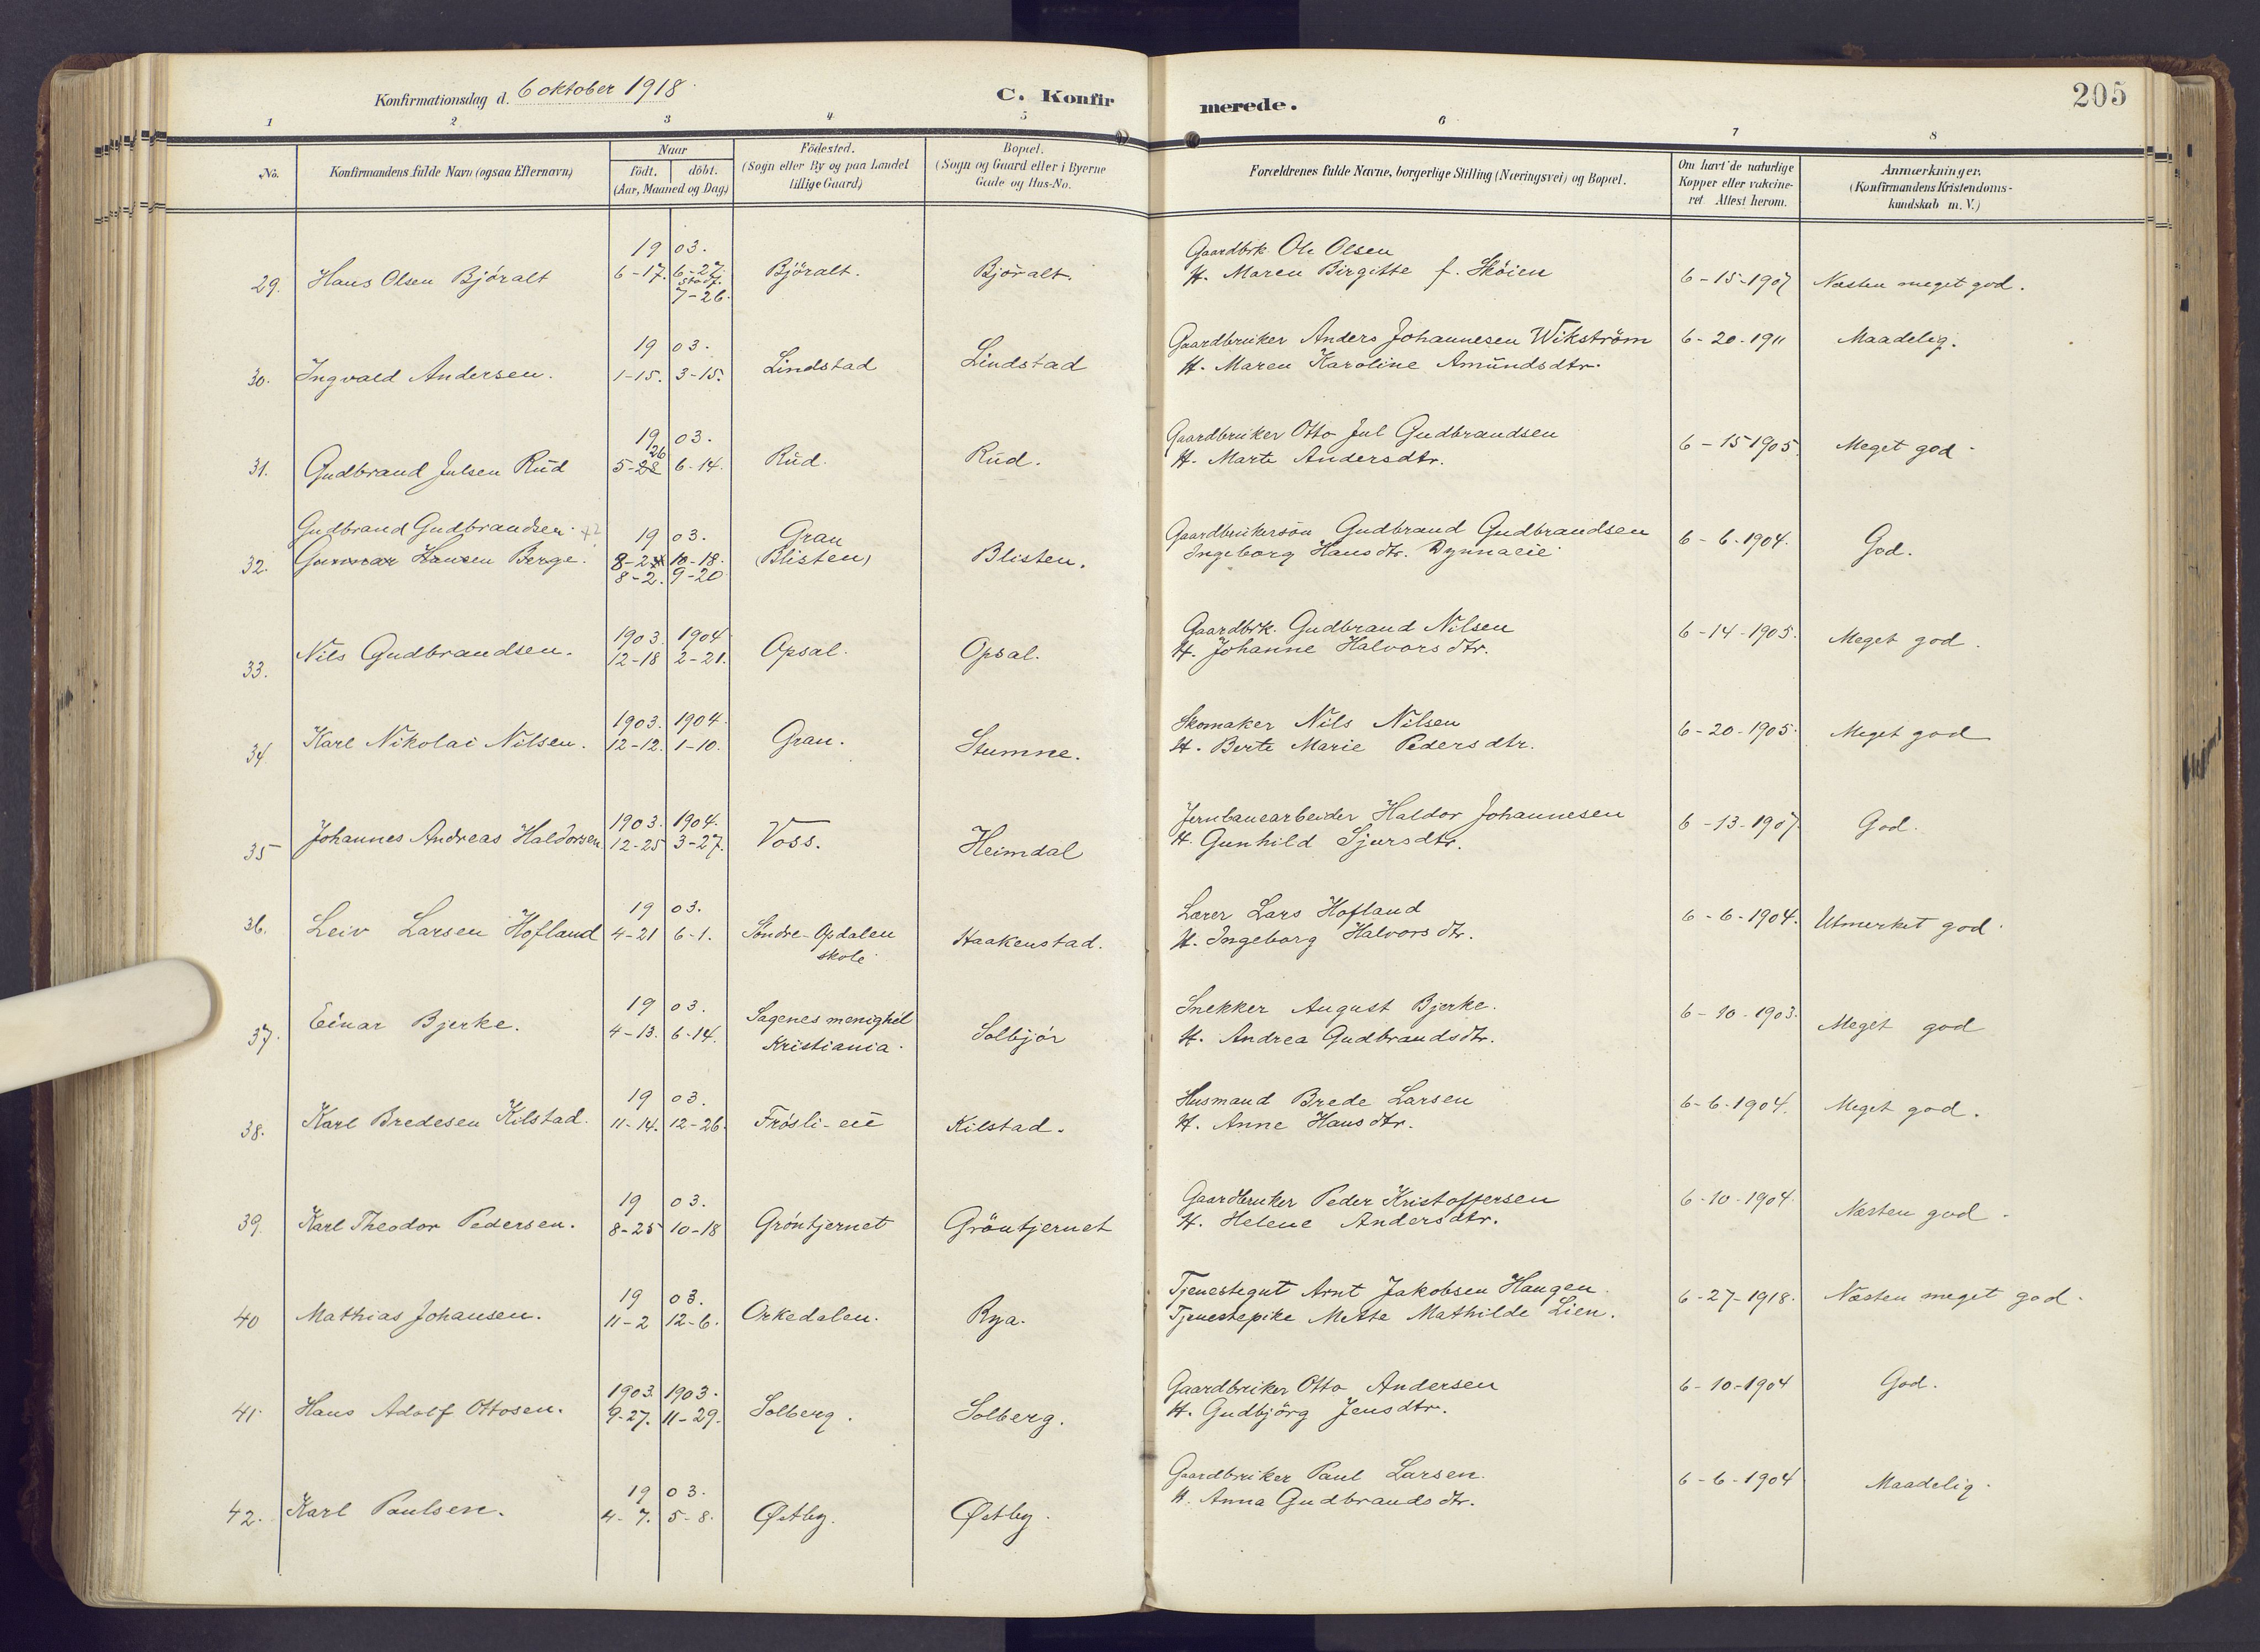 Konfirmationsdag d. 6 oktober 1918.
C. Konfirmerede.
205
1 2 3 4 5 6 7 8
No.
Konfirmandens fulde Navn (ogsaa Efternavn)
Naar
födt. döbt.
(Aar, Maaned og Dag)
Födested.
(Sogn eller By og paa Landet
tillige Gaard)
Bopæl.
(Sogn og Gaard eller i Byerne
Gade og Hus-No.
Forældrenes fulde Navne, borgerlige Stilling (Næringsvei) og Bopæl.
Om havt de naturlige
Kopper eller vakcine-
ret. Attest herom.
Anmærkninger.
(Konfirmandens Kristendoms-
kundskab m. V.)
29. Hans Olsen Björalt
1903.
6-17. 6-27.
stadf.
7-26.
Björalt. Björalt.
Gaardbrk. Ole Olsen
H. Maren Birgitte f. Höien
6-15-1907 Næsten meget god.
30. Ingvald Andersen.
1903.
1-15. 3-15.
Lindstad Lindstad
Gaardbruker Anders Johannesen Wikström
H. Maren Karoline Amundsdtr.
6-20-1911 Maadelig.
31. Gudbrand Julsen Rud
1903.
26
5-28 6-14.
Rud. Rud.
Gaardbruker Otto Jul Gudbrandsen
H. Marte Andersdtr.
6-15-1905. Meget god.
Gudbrand Gudbrandsen
32. Gunnar Hansen Berge.
1903.
8-24 10-18.
8-2. 9-20
Gran
(Blisten)
Blisten.
Gaardbrukersön Gudbrand Gudbrandsen
Ingeborg Hansdtr. Dynnaeie
6-6-1904. God.
33. Nils Gudbrandsen.
1903. 1904
12-18 2-21.
Opsal. Opsal.
Gaardbrk. Gudbrand Nilsen
H. Johanne Halvorsdtr.
6-14-1905. Meget god.
34 Karl Nikolai Nilsen.
1903. 1904.
12-12. 1-10.
Gran. Stumne.
Skomaker Nils Nilsen
H. Berte Marie Pedersdtr.
6-20-1905. Meget god
35 Johannes Andreas Haldorsen
1903. 1904.
12-25 3-27.
Voss. Heimdal
Jernbanearbeider Haldor Johannesen
H. Gunhild Sjursdtr.
6-13-1907. God.
36. Leiv Larsen Hofland
1903.
4-21 6-1.
Söndre-Opdalen
skole
Haakenstad.
Lærer Lars Hofland
H. Ingeborg Halvorsdtr.
6-6-1904. Utmerket god.
37. Einar Bjerke.
1903.
4-13. 6-14.
Sagenes menighet
Kristiania.
Solbjör
Snekker August Bjerke.
H. Andrea Gudbrandsdtr.
6-10-1903. Meget god
38. Karl Bredesen Kilstad.
1903.
11-14. 12-26.
Frösli-eie Kilstad.
Husmand Brede Larsen
H. Anne Hansdtr.
6-6-1904. Meget god.
39. Karl Theodor Pedersen.
1903.
8-25 10-18
Gröntjernet Gröntjernet
Gaardbruker Peder Kristoffersen
H. Helene Andersdtr.
6-10-1904. Næsten god.
40 Mathias Johansen.
1903.
11-2 12-6.
Orkedalen. Rya.
Tjenestegut Arnt Jakobsen Haugen.
Tjenestepike Mette Mathilde Lien.
6-27-1918. Næsten meget god.
41. Hans Adolf Ottosen.
1903. 1903.
9-27. 11-29.
Solberg. Solberg.
Gaardbruker Otto Andersen
H. Gudbjörg Jensdtr.
6-10-1904 God.
42. Karl Paulsen.
1903.
4-7. 5-8.
Østby. Østby.
Gaardbruker Paul Larsen.
H. Anna Gudbrandsdtr.
6-6-1904 Maadelig.